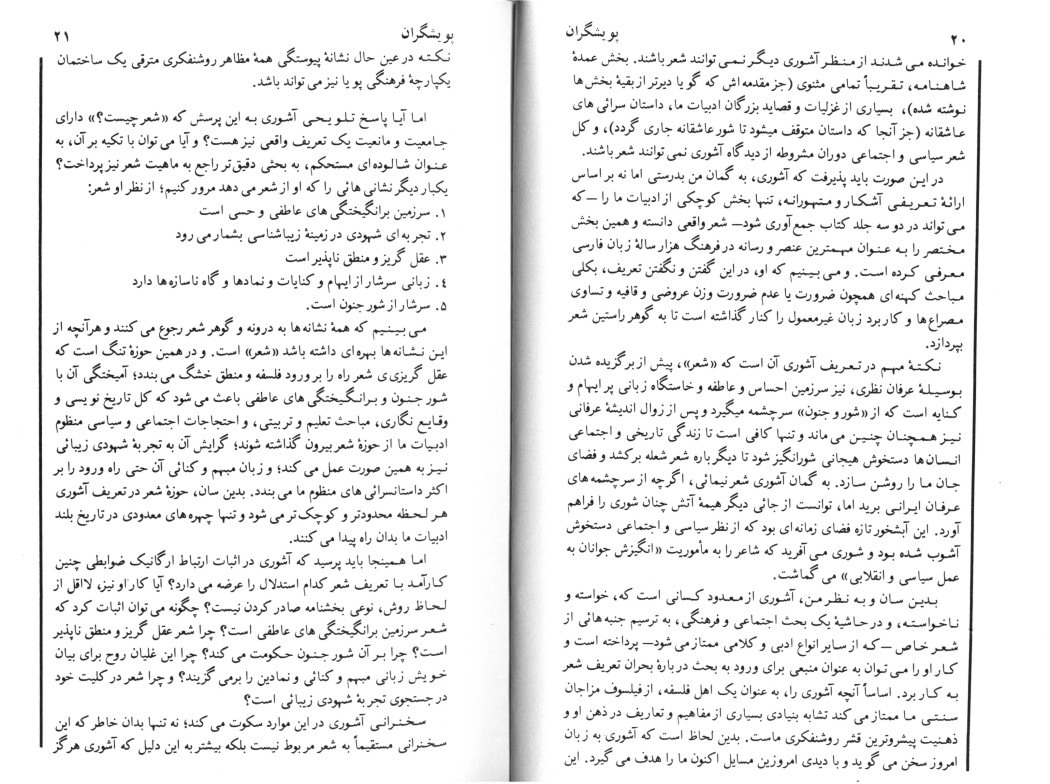 ۲۰
پویشگران
خوانده می شدند از منظر آشوری دیگر نمی توانند شعر باشند. بخش عمدهٔ
شاهنامه، تقریباً تمامی مثنوی (جز مقدمه اش که گویا دیرتر از بقیهٔ بخش ها
نوشته شده)، بسیاری از غزلیات و قصاید بزرگان ادبیات ما، داستان سرائی های
عاشقانه (جز آنجا که داستان متوقف میشود تا شور عاشقانه جاری گردد)، و کل
شعر سیاسی و اجتماعی دوران مشروطه از دیدگاه آشوری نمی توانند شعر باشند.
در این صورت باید پذیرفت که آشوری، به گمان من بدرستی اما نه بر اساس
ارائهٔ تعریفی آشکار و متهورانه، تنها بخش کوچکی از ادبیات ما را —که
می تواند در دو سه جلد کتاب جمع آوری شود— شعر واقعی دانسته و همین بخش
مختصر را به عنوان مهمترین عنصر و رسانه در فرهنگ هزار سالهٔ زبان فارسی
معرفی کرده است. و می بینیم که او، در این گفتن و نگفتن تعریف، بکلی
مباحث کهنه ای همچون ضرورت یا عدم ضرورت وزن عروضی و قافیه و تساوی
مصراع ها و کاربرد زبان غیرمعمول را کنار گذاشته است تا به گوهر راستین شعر
بپردازد.
نکتهٔ مهم در تعریف آشوری آن است که «شعر»، پیش از برگزیده شدن
بوسیلهٔ عرفان نظری، نیز سرزمین احساس و عاطفه و خاستگاه زبانی پر ایهام و
کنایه است که از «شور و جنون» سرچشمه میگیرد و پس از زوال اندیشهٔ عرفانی
نیز همچنان چنین می ماند و تنها کافی است تا زندگی تاریخی و اجتماعی
انسان ها دستخوش هیجانی شورانگیز شود تا دیگر باره شعر شعله برکشد و فضای
جان ما را روشن سازد. به گمان آشوری شعر نیمائی، اگرچه از سرچشمه های
عرفان ایرانی برید اما، توانست از جائی دیگر هیمهٔ آتش چنان شوری را فراهم
آورد. این آبشخور تازه فضای زمانه ای بود که از نظر سیاسی و اجتماعی دستخوش
آشوب شده بود و شوری می آفرید که شاعر را به مأموریت «انگیزش جوانان به
عمل سیاسی و انقلابی» می گماشت.
بدین سان و به نظر من، آشوری از معدود کسانی است که، خواسته و
ناخواسته، و در حاشیهٔ یک بحث اجتماعی و فرهنگی، به ترسیم جنبه هائی از
شعر خاص —که از سایر انواع ادبی و کلامی ممتاز می شود— پرداخته است و
کار او را می توان به عنوان منبعی برای ورود به بحث دربارهٔ بحران تعریف شعر
به کار برد. اساساً آنچه آشوری را، به عنوان یک اهل فلسفه، از فیلسوف مزاجان
سنتی ما ممتاز می کند تشابه بنیادی بسیاری از مفاهیم و تعاریف در ذهن او و
ذهنیت پیشروترین قشر روشنفکری ماست. بدین لحاظ است که آشوری به زبان
امروز سخن می گوید و با دیدی امروزین مسایل اکنون ما را هدف می گیرد. این
پویشگران
۲۱
نکته در عین حال نشانهٔ پیوستگی همهٔ مظاهر روشنفکری مترقی یک ساختمان
یکپارچهٔ فرهنگی پویا نیز می تواند باشد.
اما آیا پاسخ تلویحی آشوری به این پرسش که «شعر چیست؟» دارای
جامعیت و مانعیت یک تعریف واقعی نیز هست؟ و آیا می توان با تکیه بر آن، به
عنوان شالوده ای مستحکم، به بحثی دقیق تر راجع به ماهیت شعر نیز پرداخت؟
یکبار دیگر نشانی هائی را که او از شعر می دهد مرور کنیم؛ از نظر او شعر:
۱. سرزمین برانگیختگی های عاطفی و حسی است
۲. تجربه ای شهودی در زمینهٔ زیباشناسی بشمار می رود
۳. عقل گریز و منطق ناپذیر است
۴. زبانی سرشار از ایهام و کنایات و نمادها و گاه ناسازه ها دارد
۵. سرشار از شور جنون است.
می بینیم که همهٔ نشانه ها به درونه و گوهر شعر رجوع می کنند و هرآنچه از
این نشانه ها بهره ای داشته باشد «شعر» است. و در همین حوزهٔ تنگ است که
عقل گریزی شعر راه را بر ورود فلسفه و منطق خشگ می بندد؛ آمیختگی آن با
شور جنون و برانگیختگی های عاطفی باعث می شود که کل تاریخ نویسی و
وقایع نگاری، مباحث تعلیم و تربیتی، و احتجاجات اجتماعی و سیاسی منظوم
ادبیات ما از حوزهٔ شعر بیرون گذاشته شوند؛ گرایش آن به تجربهٔ شهودی زیبائی
نیز به همین صورت عمل می کند؛ و زبان مبهم و کنائی آن حتی راه ورود را بر
اکثر داستانسرائی های منظوم ما می بندد. بدین سان، حوزهٔ شعر در تعریف آشوری
هر لحظه محدودتر و کوچک تر می شود و تنها چهره های معدودی در تاریخ بلند
ادبیات ما بدان راه پیدا می کنند.
اما همینجا باید پرسید که آشوری در اثبات ارتباط ارگانیک ضوابطی چنین
کارآمد با تعریف شعر کدام استدلال را عرضه می دارد؟ آیا کار او نیز، لااقل از
لحاظ روش، نوعی بخشنامه صادر کردن نیست؟ چگونه می توان اثبات کرد که
شعر سرزمین برانگیختگی های عاطفی است؟ چرا شعر عقل گریز و منطق ناپذیر
است؟ چرا بر آن شور جنون حکومت می کند؟ چرا این غلیان روح برای بیان
خویش زبانی مبهم و کنائی و نمادین را برمی گزیند؟ و چرا شعر در کلیت خود
در جستجوی تجربهٔ شهودی زیبائی است؟
سخنرانی آشوری در این موارد سکوت می کند؛ نه تنها بدان خاطر که این
سخنرانی مستقیماً به شعر مربوط نیست بلکه بیشتر به این دلیل که آشوری هرگز